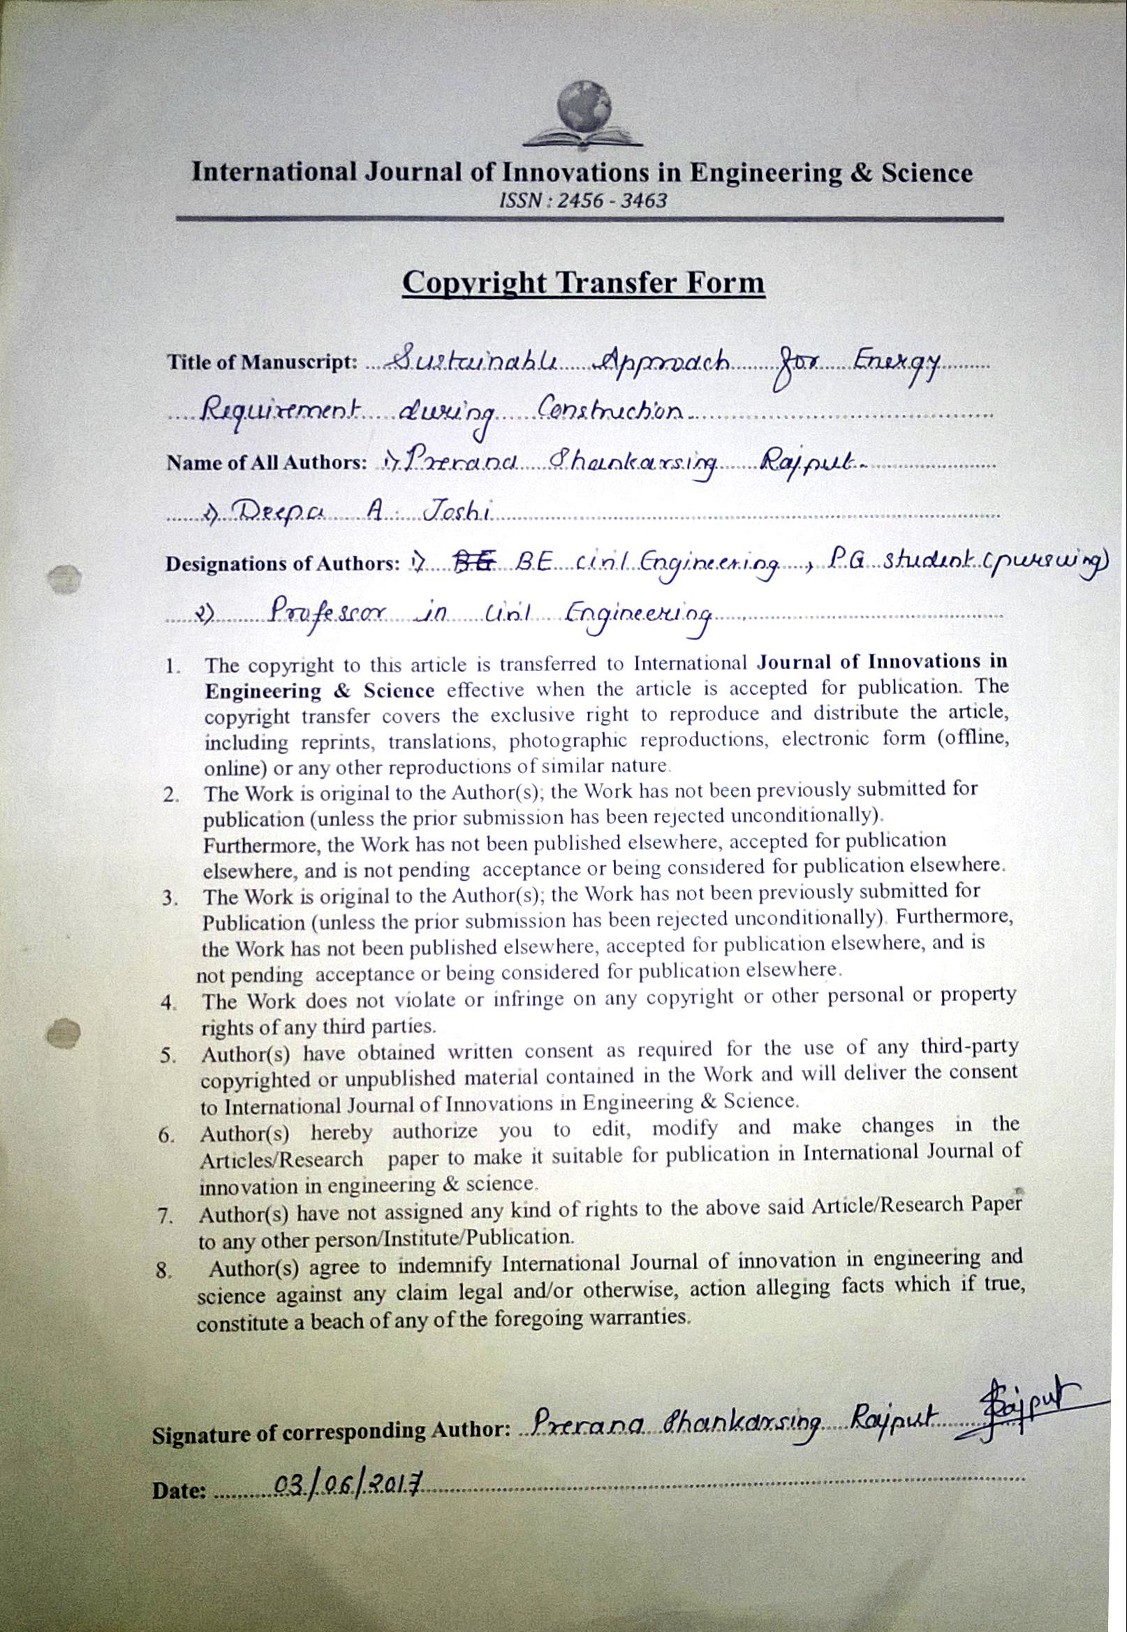 International Journal of Innovations in Engineering & Science
ISSN : 2456 - 3463
Copyright Transfer Form
Title of Manuscript: Sustainable Approach for Energy
Requirement during Construction
Name of All Authors: 1) Prerana Shankarsing Rajput
2) Deepa A. Joshi
Designations of Authors: 1) BE BE civil Engineering, P.G student (pursuing)
2) Professor in civil Engineering
1. The copyright to this article is transferred to International Journal of Innovations in
Engineering & Science effective when the article is accepted for publication. The
copyright transfer covers the exclusive right to reproduce and distribute the article,
including reprints, translations, photographic reproductions, electronic form (offline,
online) or any other reproductions of similar nature.
2. The Work is original to the Author(s); the Work has not been previously submitted for
publication (unless the prior submission has been rejected unconditionally).
Furthermore, the Work has not been published elsewhere, accepted for publication
elsewhere, and is not pending acceptance or being considered for publication elsewhere.
3. The Work is original to the Author(s); the Work has not been previously submitted for
Publication (unless the prior submission has been rejected unconditionally). Furthermore,
the Work has not been published elsewhere, accepted for publication elsewhere, and is
not pending acceptance or being considered for publication elsewhere.
4. The Work does not violate or infringe on any copyright or other personal or property
rights of any third parties.
5. Author(s) have obtained written consent as required for the use of any third-party
copyrighted or unpublished material contained in the Work and will deliver the consent
to International Journal of Innovations in Engineering & Science.
6. Author(s) hereby authorize you to edit, modify and make changes in the
Articles/Research paper to make it suitable for publication in International Journal of
innovation in engineering & science.
7. Author(s) have not assigned any kind of rights to the above said Article/Research Paper
to any other person/Institute/Publication.
8. Author(s) agree to indemnify International Journal of innovation in engineering and
science against any claim legal and/or otherwise, action alleging facts which if true,
constitute a beach of any of the foregoing warranties.
Signature of corresponding Author: Prerana Shankarsing Rajput Rajput
Date: 03/06/2017